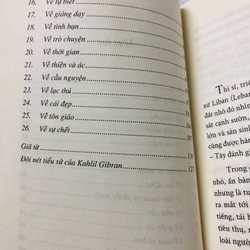 Về tự biết
17. Về giảng dạy
18. Về tình bạn
19. Về trò chuyện
20. Về thời gian
21. Về thiện và ác
22. Về cầu nguyện
23. Về lạc thú
24. Về cái đẹp
25. Về tôn giáo
26. Về sự chết
Giã từ
Đôi nét tiểu sử của Kahlil Gibran
Thi sĩ, triế
xứ Liban (Leban
đất nhỏ đó nhô
sát cạnh sườn,
lớn và sản sinh
cùng được hàn
- Tây đánh gi
Trong
nhỏ, ấn bản
nhưng là tu
ra mắt tới
tiếng, tái
tiếng thu
loài ngườ